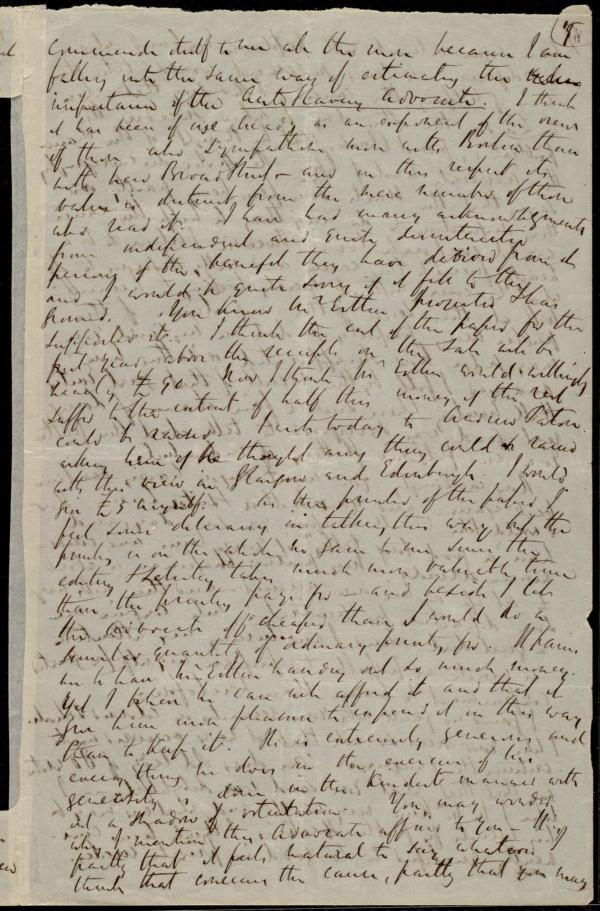 7
commends itself to me all the more because I am
falling into the same way of estimating the
importance of the Anti-Slavery Advocate. I think
it has been of use already as an exponent of the views
of those who sympathise more with Boston than
with New Broad Street - and in this respect its
value is distinct from the mere number of those
who read it. I have had many acknowledgments
from independent and quite disinterested
persons of the benefit they have derived from it
and I would be quite sorry if it fell to the
ground. You know Mr Estlin has
supported it. I think the cost of the paper for the
past year above the receipts on the sale will be
nearly £90. Now I think Mr Estlin would willingly
suffer to the extent of half this money if the rest
could be raised. I wrote today to Andrew Paton
asking him if he thought any thing could be raised
with this view in Glasgow and Edinburgh. I would
give £5 myself. As the printer of the paper I
feel some delicacy in telling this way but the
printing is on the whole no gain to me since the
editing &c takes much more valuable time
than the printing pays for - and beside I let
the Advocate off cheaper than I would do a
similar quantity of ordinary printing for. It pains
me to have Mr Estlin handing out so much money.
Yet I know he can well afford it and that it
gives him more pleasure to expend it in this way
than to keep it. He is extremely generous and
every thing he does in the exercise of his
generosity is done in the kindest manner with
out a shadow of ostentation. You may wonder
why I mention the Advocate affairs to you - It is
partly that it feels natural to say whatever
that concerns the cause, partly that you may